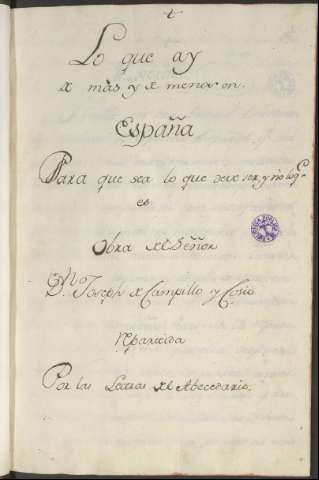 Lo que ay
de mas y de menos en
España
Para que sea lo que deve ser, y no lo q.e
es
Obra del Señor
D.n Joseph de Campillo y Cosio
repartida
Por las Letras del Abecedario.